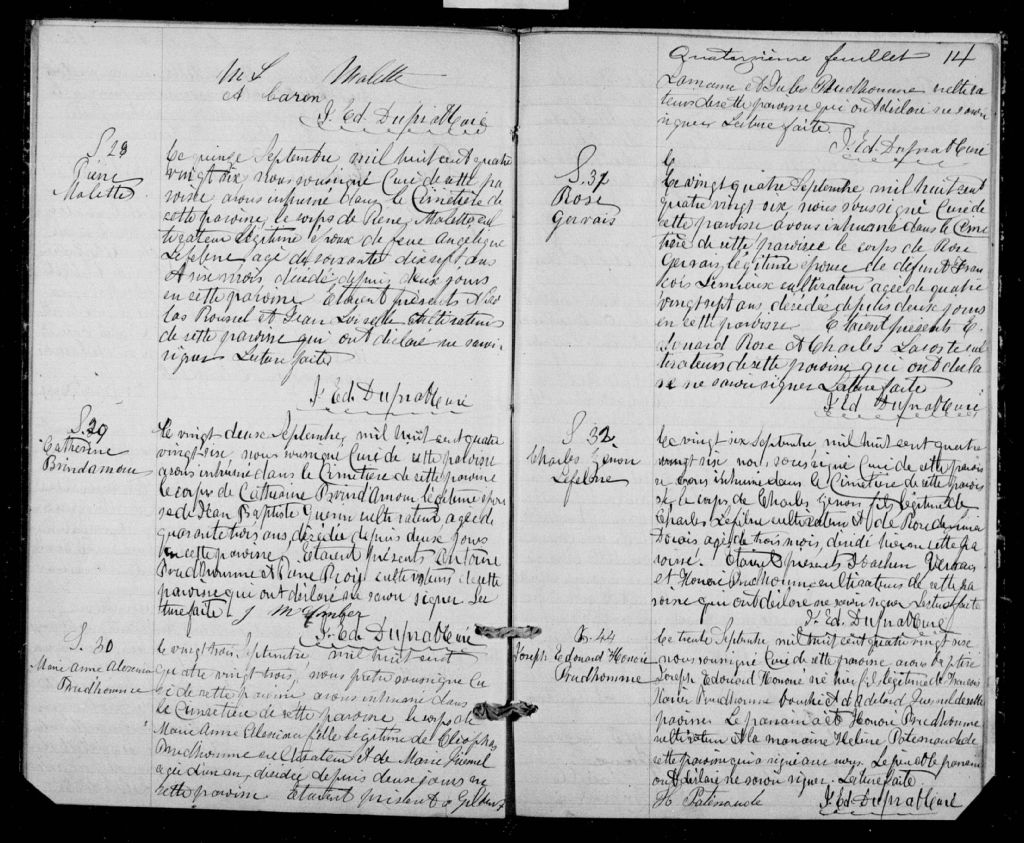 M L Malette
A Caron
J. Ed. Dupras Curé
S. 28
Pierre
Malette
Le quinze Septembre mil huit cent quatre
vingt six nous soussigné Curé de cette pa
roisse avons inhumé dans le Cimetière de
cette paroisse, le corps de Pierre Malette, cul
tivateur légitime époux de feue Angelique
Lefebvre, agé de soixante dix sept ans
et six mois, décédé depuis deux jours
en cette paroisse. Etaient présents
Roussel et Jean Loiselle cultivateurs
de cette paroisse qui ont déclaré ne savoir
signer Lecture faite
J. Ed. Dupras Curé
S. 29
Catherine
Brindamour
Le vingt deux Septembre, mil huit cent quatre
vingt six, nous soussigné Curé de cette paroisse
avons inhumé dans le Cimetière de cette paroisse
le corps de Catherine Brind'Amour légitime épou
se de Jean Baptiste Guerin cultivateur, agée de
quarante trois ans, décédée depuis deux jours
en cette paroisse. Etaient présents Antoine
Prudhomme et Pierre cultivateurs de cette
paroisse qui ont déclaré ne savoir signer Lec
ture faite J McComber
J. Ed. Dupras Curé
S. 30
Marie Anne
Prudhomme
Le vingt trois Septembre, mil huit cent
quatre vingt trois, nous prêtre soussigné Cu
ré de cette paroisse avons inhumé dans
le Cimetière de cette paroisse le corps de
Marie Anne fille légitime de Cléophas
Prudhomme cultivateur et de Marie
agée d'un an, décédée depuis deux jours en
cette paroisse. Etaient présents
Quatorzième feuillet 14
et Jules Prudhomme cultiva
teurs de cette paroisse qui ont déclaré ne savoir
signer Lecture faite.
J. Ed. Dupras Curé
S. 31
Rose
Gervais
Le vingt quatre Septembre mil huit cent
quatre vingt six nous soussigné Curé de
cette paroisse avons inhumé dans le Cime
tière de cette paroisse le corps de Rose
Gervais, légitime épouse de défunt Fran
çois Lemieux cultivateur agée de quatre
vingt sept ans, décédée depuis deux jours
en cette paroisse. Etaient présents E
douard Rose et Charles Lacoste cul
tivateurs de cette paroisse qui ont décla
ré ne savoir signer Lecture faite
J. Ed. Dupras Curé
S. 32.
Charles Genon
Lefebvre
Le vingt six Septembre mil huit cent quatre
vingt six nous soussigné Curé de cette parois
se avons inhumé dans le Cimetière de cette parois
se, le corps de Charles Genon fils légitime de
Charles Lefebvre cultivateur et de Rose
agé de trois mois, décédé hier en cette pa
roisse. Etaient présents Joachim Gervais
et Honoré Prudhomme cultivateurs de cette pa
roisse qui ont déclaré ne savoir signer Lecture faite
J. Ed. Dupras Curé
B. 44
Joseph Edouard Honoré
Prudhomme
Le trente Septembre mil huit cent quatre vingt six
nous soussigné Curé de cette paroisse avons baptisé
Joseph Edouard Honoré né hier fils légitime de François
Xavier Prudhomme boucher et d'Adelard de cette
paroisse. Le parrain a été Honoré Prudhomme
cultivateur et la marraine Helène Patenaude de
cette paroisse qui a signé avec nous. Le père et le parrain
ont déclaré ne savoir signer. Lecture faite
H Patenaude J. Ed. Dupras Curé